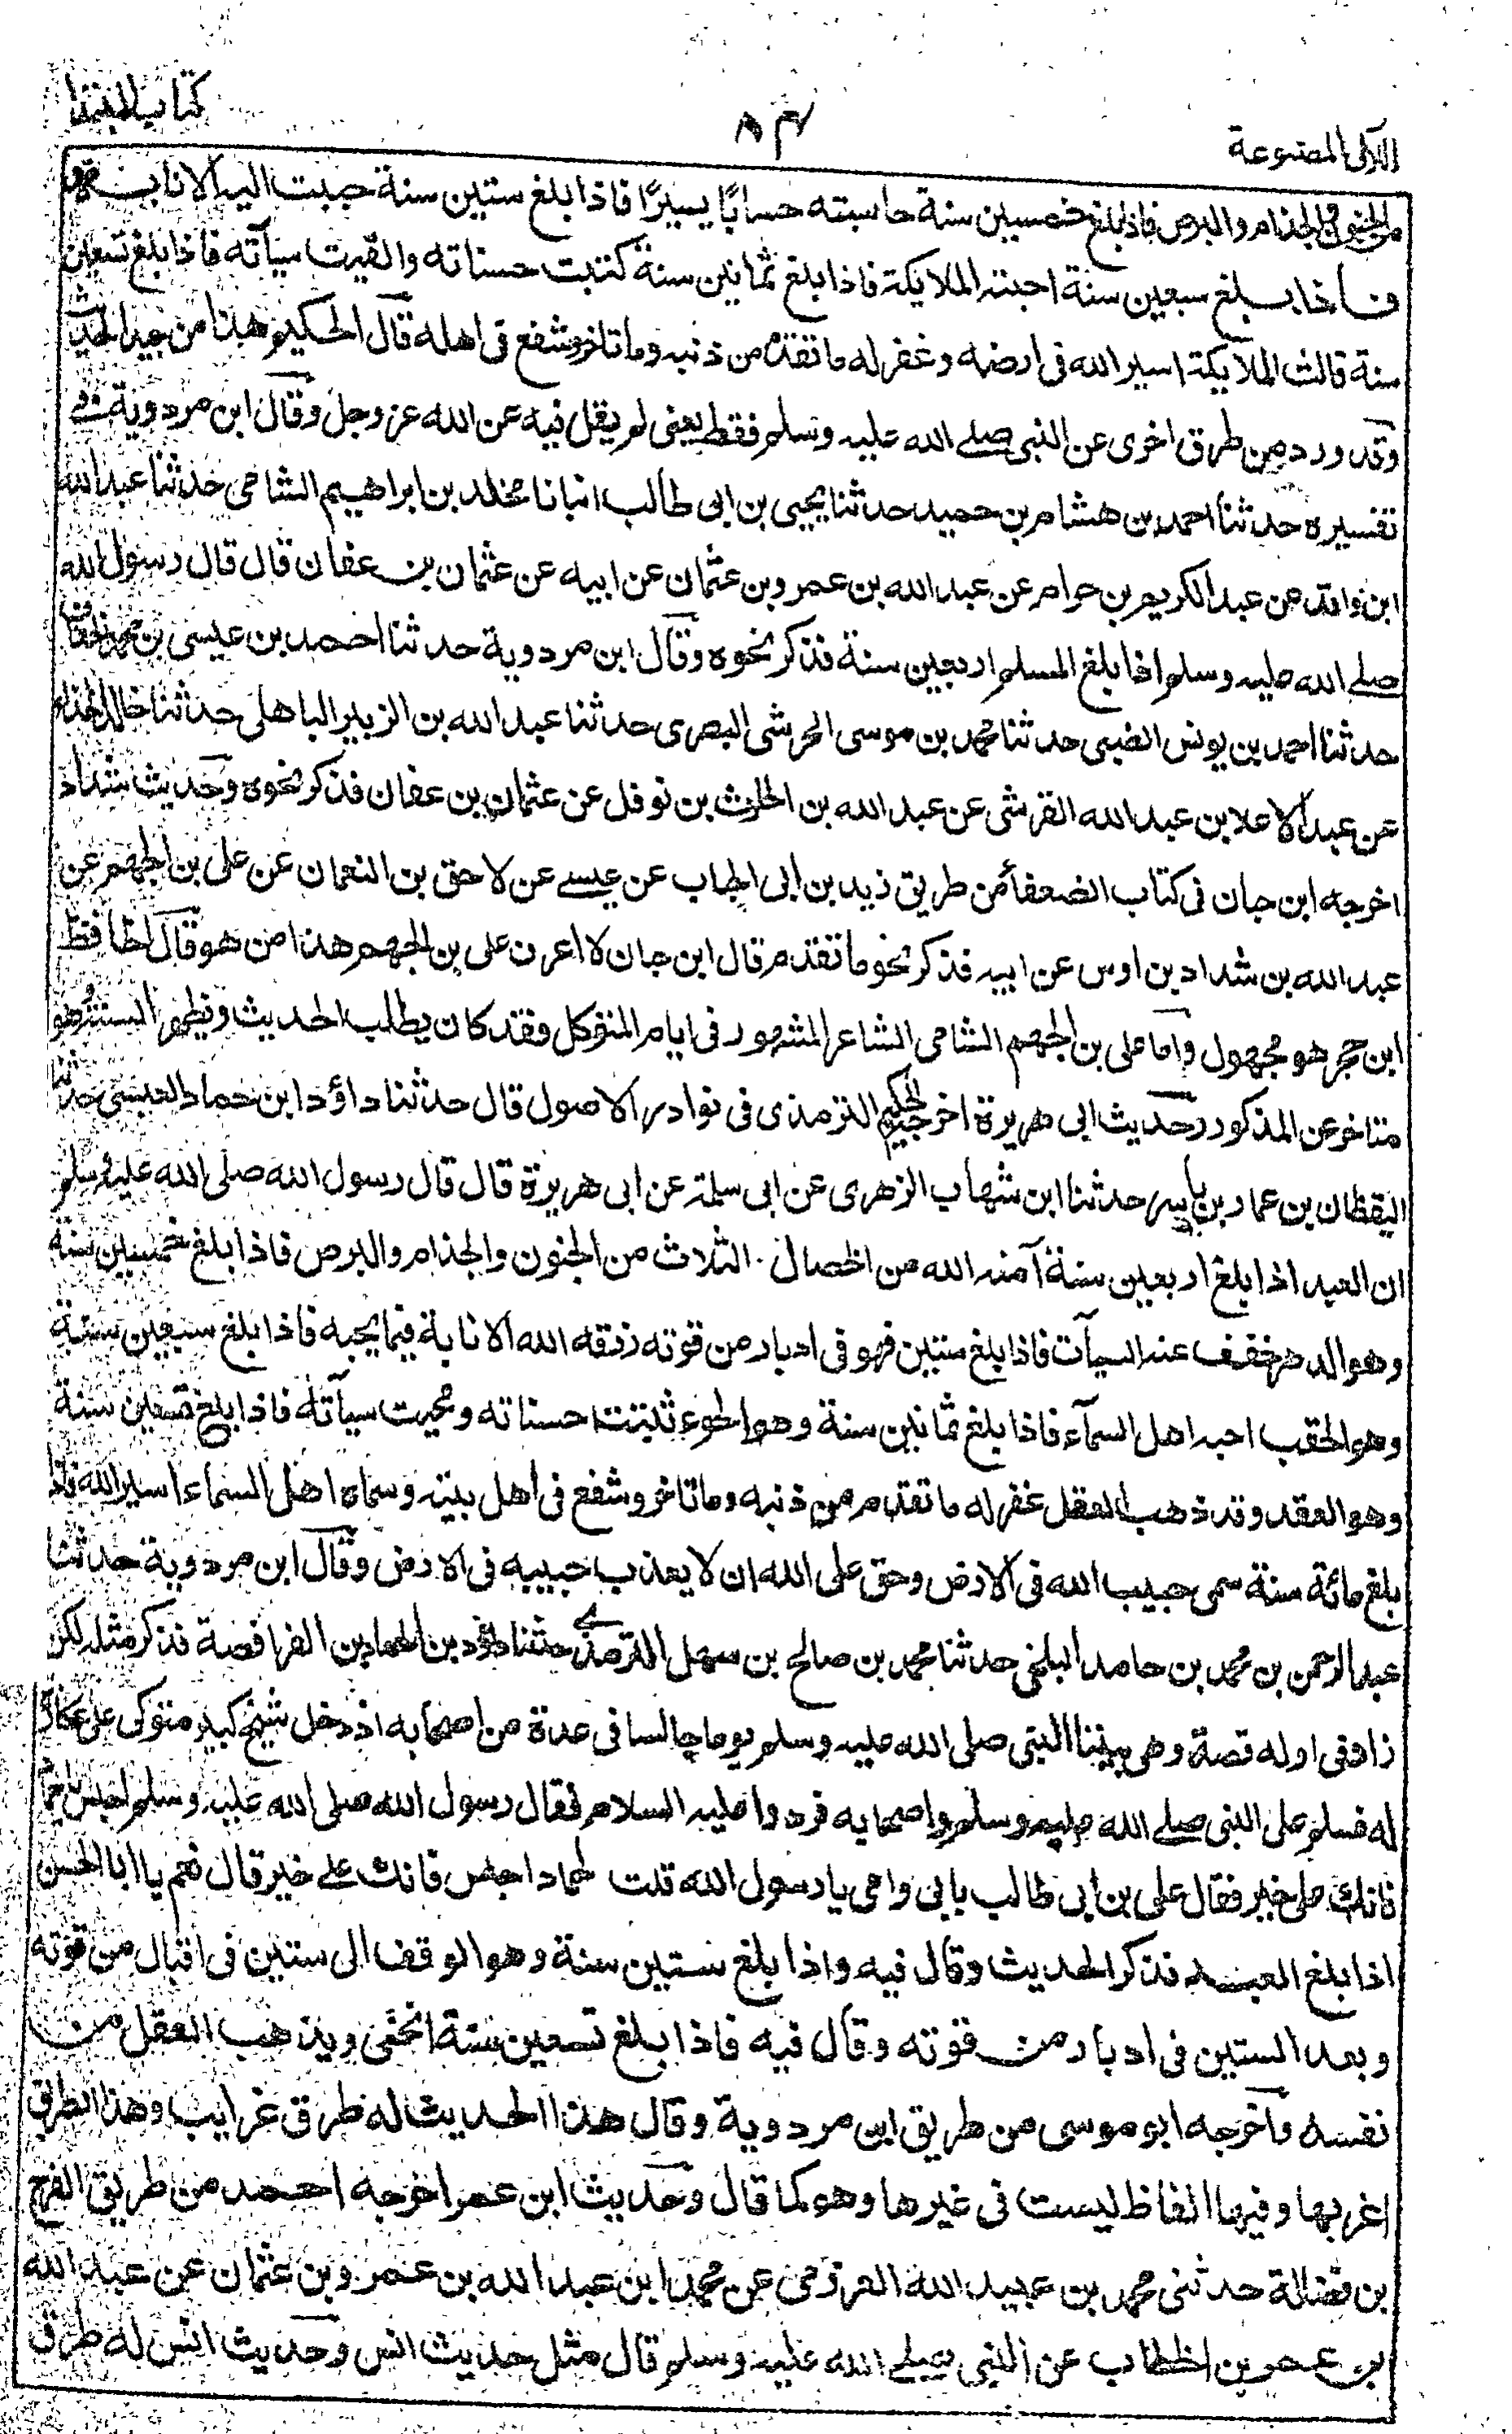 كتاب المبتدا
٨٣
اللآلى المصنوعة
من الجنون والجذام والبرص فاذا بلغ خمسين سنة حاسبته حسابًا يسيرًا فاذا بلغ ستين سنة حببت اليه الانابة
فاذا بلغ سبعين سنة احبته الملايكة فاذا بلغ ثمانين سنة كتبت حسناته والقيت سيآته فاذا بلغ تسعين
سنة قالت الملآيكة اسير الله فى ارضه وغفر له ما تقدم من ذنبه وما تاخر وشفع فى اهله قال الحكيم هذا من جيد الحديث
وقد ورد من طرق اخرى عن النبى صلے الله عليه وسلم فقط يعنى لم يقل فيه عن الله عز وجل وقال ابن مردوية فے
تفسيره حدثنا احمد بن هشام بن حميد حدثنا يحيى بن ابى طالب انبانا مخلد بن ابراهيم الشامى حدثنا عبد الله
ابن واقد عن عبد الكريم بن حرام عن عبد الله بن عمرو بن عثمان عن ابيه عن عثمان بن عفان قال قال رسول الله
صلے الله عليه وسلم اذا بلغ المسلم اربعين سنة فذكر نحوه وقال ابن مردوية حدثنا احمد بن عيسى بن محمد الخفاف
حدثنا احمد بن يونس الضبى حدثنا محمد بن موسى الحرشى البصرى حدثنا عبد الله بن الزبير الباهلى حدثنا خالد الحذاء
عن عبد الاعلا بن عبد الله القرشى عن عبد الله بن الحارث بن نوفل عن عثمان بن عفان فذكر نحوه وحديث شداد
اخرجه ابن حبان فى كتاب الضعفأ من طريق زيد بن ابى الحباب عن عيسے عن لاحق بن النعمان عن على بن الجهم عن
عبد الله بن شداد بن اوس عن ابيه فذكر نحو ما تقدم قال ابن حبان لا اعرف على بن الجهم هذا من هو قال الحافظ
ابن حجر هو مجهول واما على بن الجهم الشامى الشاعر المشهور فى ايام المتوكل وفقد كان يطلب الحديث ويظهر السنة وهو
متاخر عن المذكور وحديث ابى هريرة اخرجه الحكيم الترمذى فى نوادر الاصول قال حدثنا داؤد ابن حماد العبسى حدثنا
اليقظان بن عمار بن ياسر حدثنا ابن شهاب الزهرى عن ابى سلمة عن ابى هريرة قال قال رسول الله صلى الله عليه وسلم
ان العبد اذا بلغ اربعين سنة آمنه الله من الخصال الثلاث من الجنون والجذام والبرص فاذا بلغ خمسين سنة
وهو الدهر خفف عنه السيآت فاذا بلغ ستين فهو فى ادبار من قوته رزقه الله الانابة فيما يحبه فاذا بلغ سبعين سنة
وهو الحقب احبه اهل السمآء فاذا بلغ ثمانين سنة وهو الخرف ثبتت حسناته ومحيت سيآته فاذا بلغ تسعين سنة
وهو العقد وقد ذهب العقل غفر له ما تقدم من ذنبه وما تاخر وشفع فى اهل بيته وسماه اهل السماء اسير الله فاذا
بلغ مائة سنة سمى حبيب الله فى الارض وحق على الله ان لا يعذب حبيبه فى الارض وقال ابن مردوية حدثنا
عبد الرحمن بن محمد بن حامد البلخى حدثنا محمد بن صالح بن سهل الترمذے حدثنا داؤد بن الحماد بن الفرافصة فذكر مثله لكن
زاد فى اوله قصة وهى بيننا النبى صلى الله عليه وسلم يوما جالسا فى عدة من اصحابه اذ دخل شيخ كبير متوكى على عكاز
له فسلم على النبى صلے الله عليه وسلم واصحابه فردوا عليه السلام فقال رسول الله صلى الله عليه وسلم اجلس يا حماد
فانك على خير فقال على بن ابى طالب بابى وامى يا رسول الله قلت لحماد اجلس فانك علے خير قال نعم يا ابا الحسن
اذا بلغ العبد فذكر الحديث وقال فيه واذا بلغ ستين سنة وهو الوقف الى ستين فى اقبال من قوته
وبعد الستين فى ادبار من قوته وقال فيه فاذا بلغ تسعين سنة انحنى ويذهب العقل من
نفسه واخرجه ابو موسى من طريق ابن مردوية وقال هذا الحديث له طرق غرايب وهذا الطرق
اغربها وفيها الفاظ ليست فى غيرها وهو كما قال وحديث ابن عمر اخرجه احمد من طريق الفرج
بن فضالة حدثنى محمد بن عبيد الله العرزمى عن محمد ابن عبد الله بن عمرو بن عثمان عن عبد الله
بن عمر بن الخطاب عن النبى صلے الله عليه وسلم قال مثل حديث انس وحديث انس له طرق